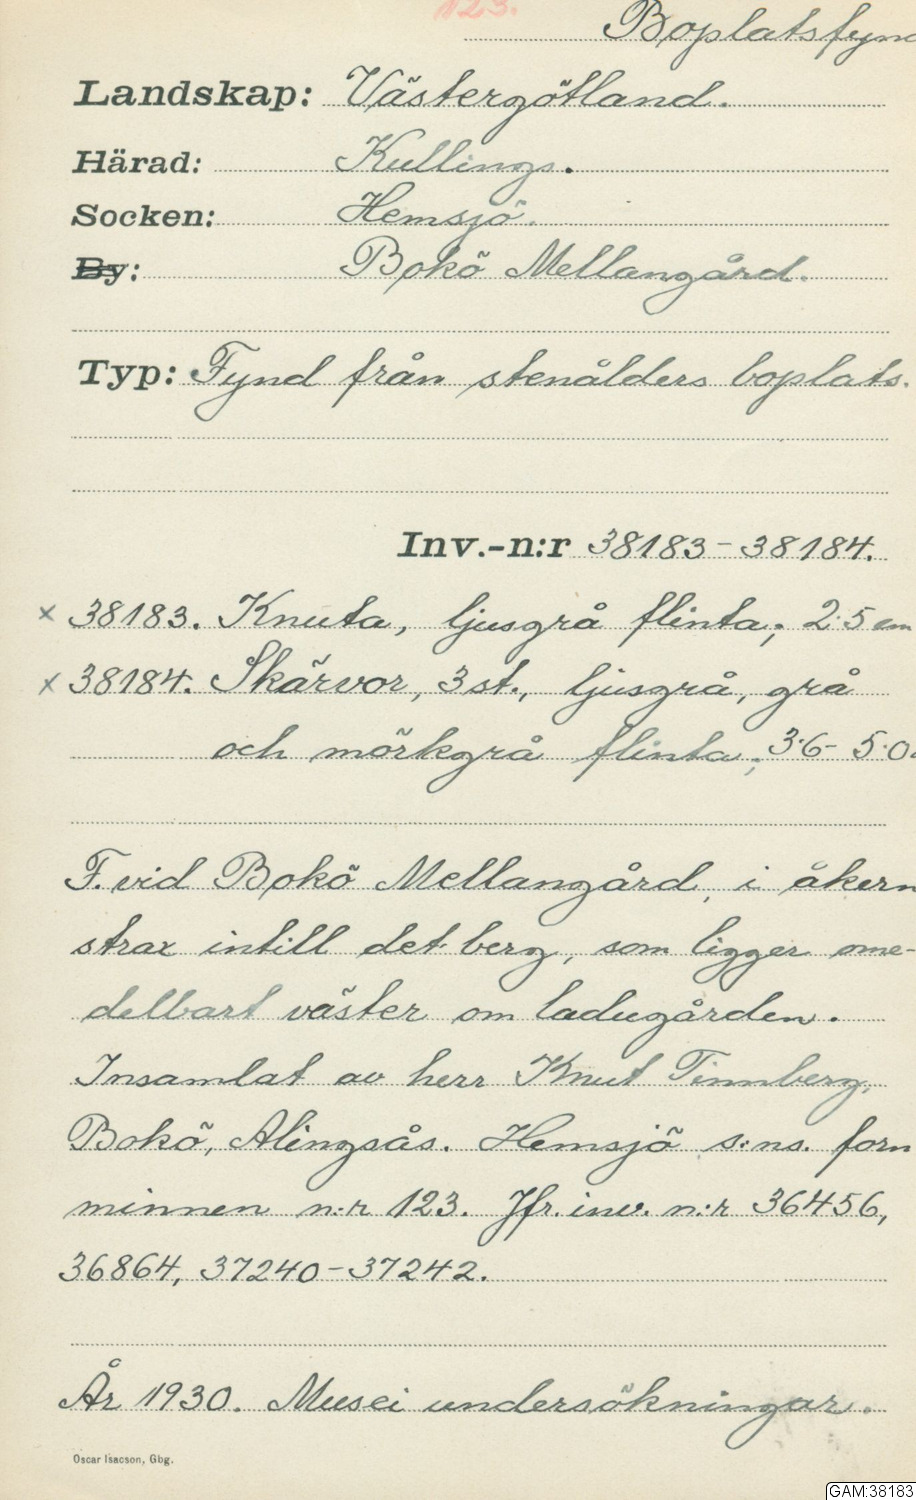 123.
Boplatsfynd
Landskap: Västergötland.
Härad: Kullings.
Socken: Hemsjö.
By: Bokö Mellangård.
Typ: Fynd från stenålders boplats.
Inv.-n:r 38183-38184.
x 38183. Knuta, ljusgrå flinta; 2.5 cm
x 38184. Skärvor, 3 st., ljusgrå, grå
och mörkgrå flinta; 3.6- 5.0
F. vid Bokö Mellangård, i åkern
strax intill det berg, som ligger ome-
delbart väster om ladugården.
Insamlat av herr Knut Timmberg,
Bokö, Alingsås. Hemsjö s:ns. forn
minnen n:r 123. Jfr. inv. n:r 36456,
36864, 37240-37242.
År 1930. Musei undersökningar.
Oscar Isacson, Gbg.
GAM:38183